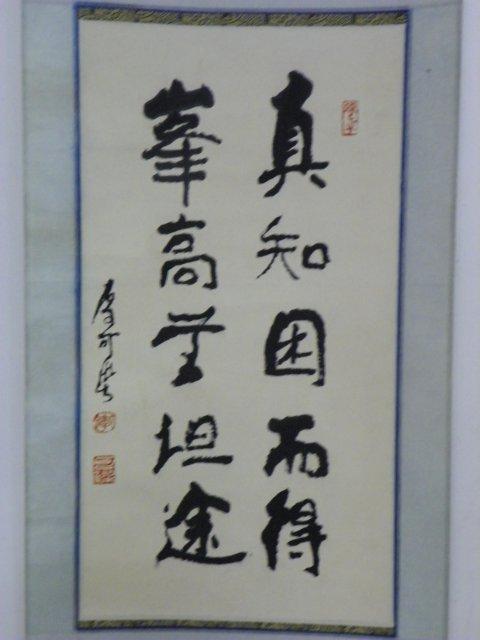 真知困而得
峯高無坦途